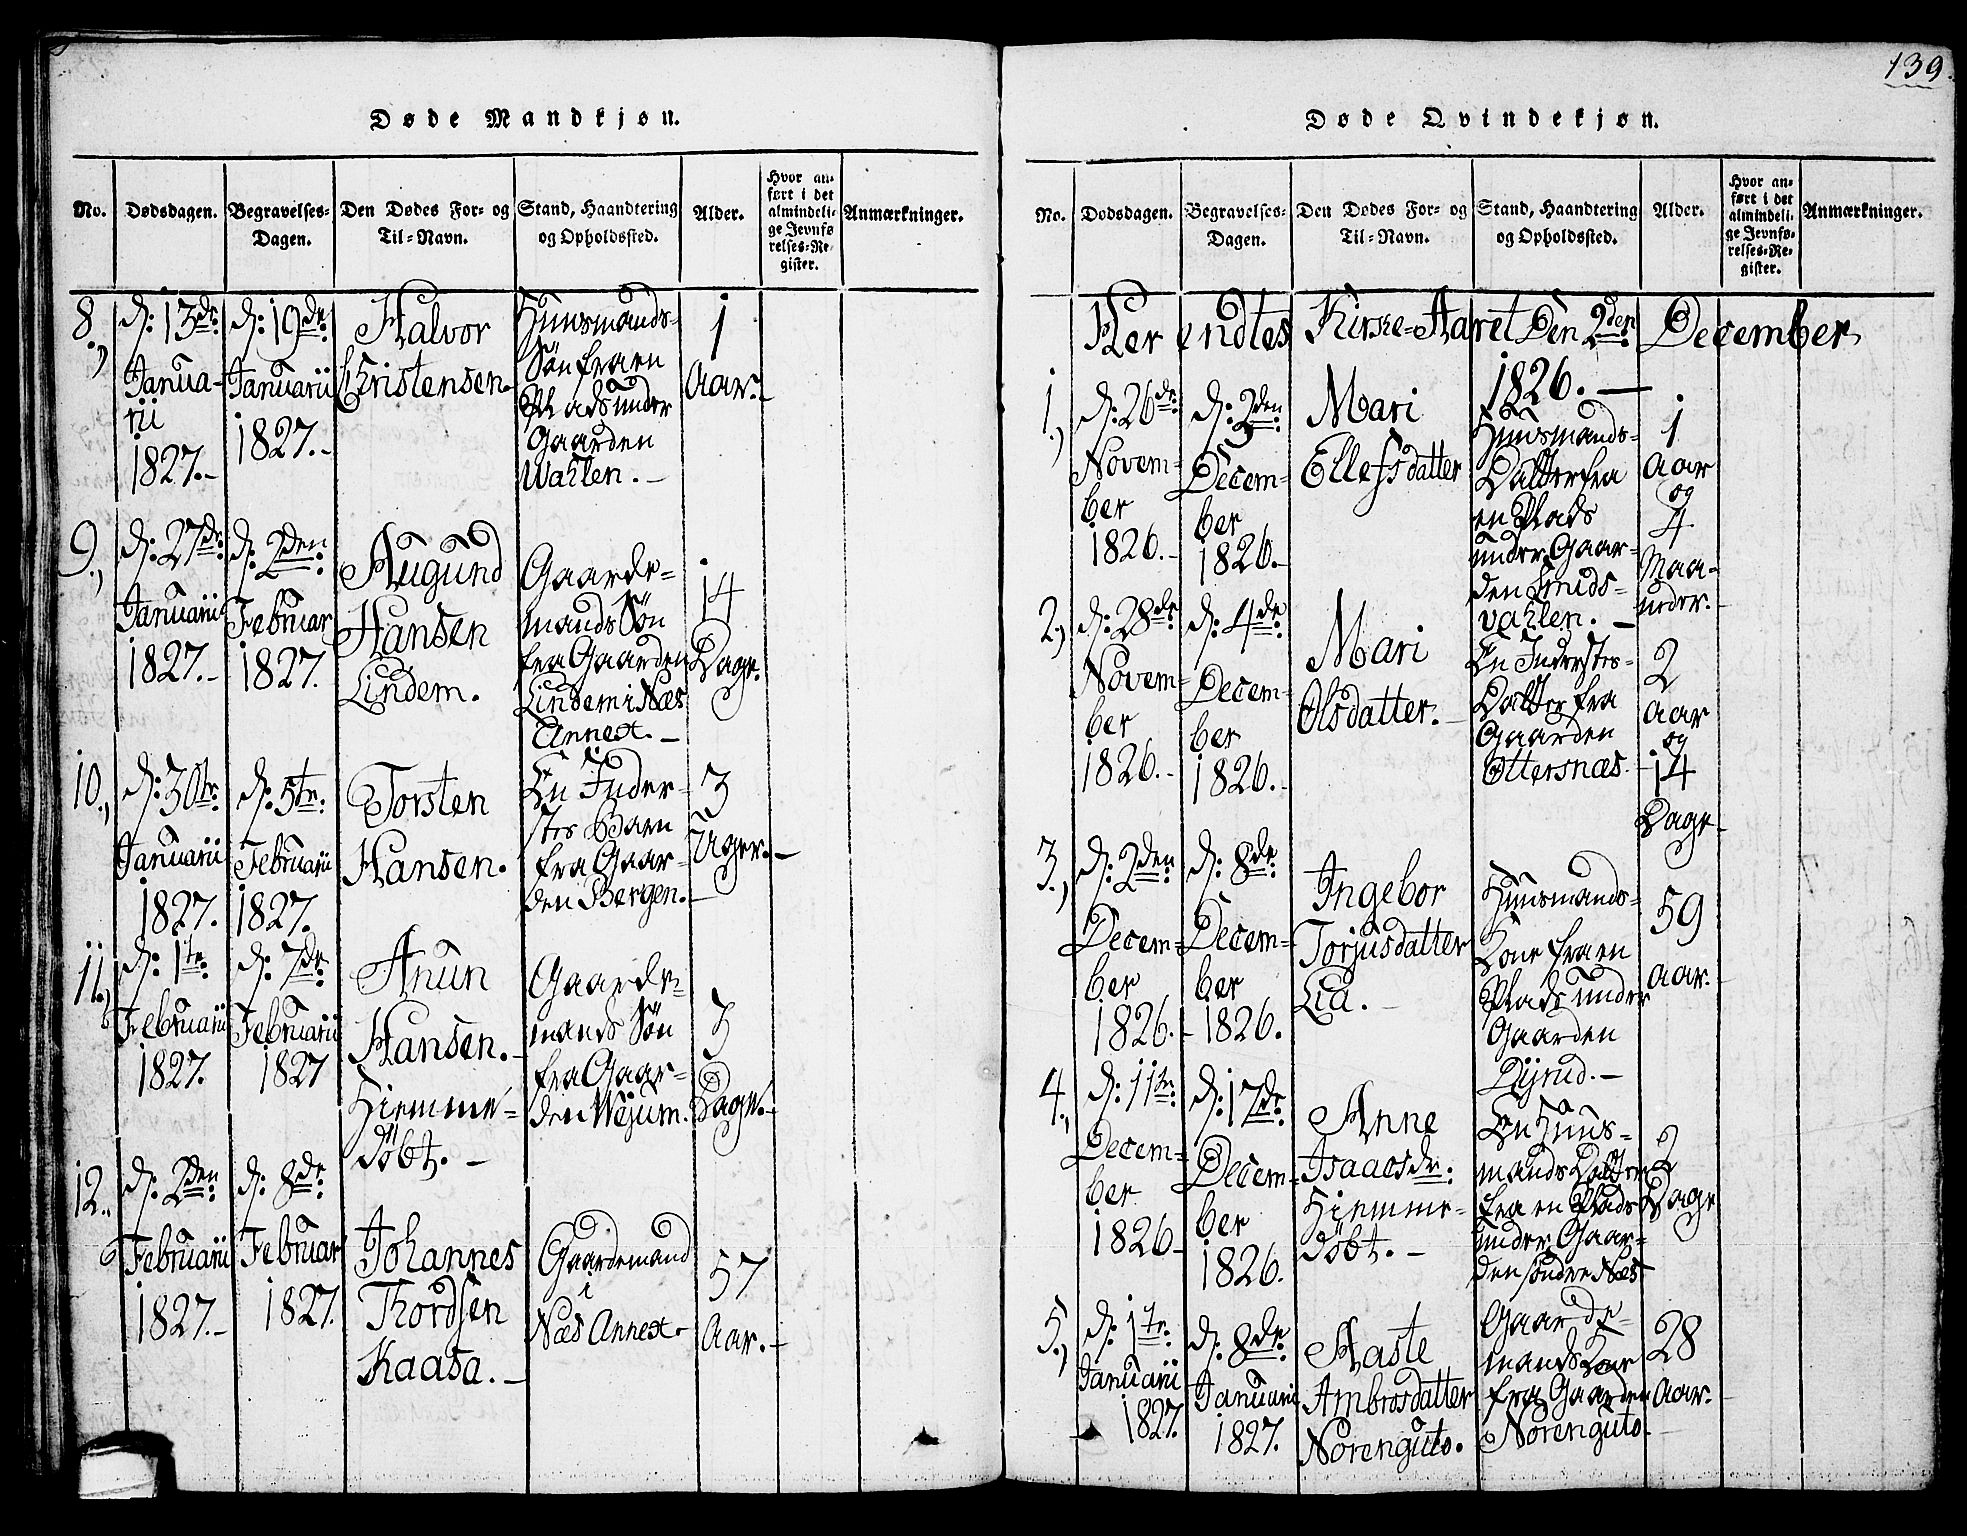 139.
Døde Mandkjøn.
No.
Dødsdagen.
Begravelses-
Dagen.
Den Dødes For- og
Til-Navn.
Stand, Haandtering
og Opholdssted.
Alder.
Hvor an-
ført i det
almindeli-
ge Jevnfø
relses-Re-
gister.
Anmærkninger.
8.,
d: 13de
Janua-
rii
1827.-
d: 19de
Januarii
1827.-
Halvor
Christensen.
Huusmands-
Søn fra en
Plads under
Gaarden
Wahlen.-
1
Aar.-
9.,
d: 27de
Januarii
1827.-
d: 2den
Februar
1827.
Augund
Hansen
Lindem.
Gaarde-
mands Søn
fra Gaarden
Lindem i Næs
Annext.-
14
Dage.
10.,
d: 30te
Januarii
1827.
d: 5te
Februarii
1827.
Torsten
Hansen.
En Inder-
stes Barn
fra Gaar-
den Bergen.-
3
Uger.-
11.,
d: 1te
Februarii
1827.
d: 7de
Februarii
1827
Anun
Hansen.-
Hiemme-
Döbt.-
Gaarde-
mands Søn
fra Gaar-
den Wejum.
3
Dage.-
12.,
d: 2den
Februarii
1827.-
d: 8de
Februar
1827.
Johannes
Thordsen
Kaasa.-
Gaardemand
i
Næs Annext-
57
Aar.-
Døde Qvindekjøn.
No.
Dødsdagen.
Begravelses-
Dagen.
Den Dødes For- og
Til-Navn.
Stand, Haandtering
og Opholdssted.
Alder.
Hvor an-
ført i det
almindeli-
ge Jevnfø-
relses-Re-
gister.
Anmærkninger.
Her endtes Kirke-Aaret Den 2den December
1826.-
1.,
d: 26de
Novem-
ber
1826.-
d: 2den
Decem-
ber
1826.-
Mari
Ellefsdatter
Huusmands-
Datter fra
en Plads
under Gaar-
den Smids-
vahlen.-
1
Aar
og
4
Maa-
neder.
2.,
d: 28de
Novem-
ber
1826.-
d: 4de
Decem-
ber
1826.-
Mari
Olsdatter.-
En Inderstes-
Datter fra
Gaarden
Ottersnæs.
2
Aar
og
14
Dage
3.,
d: 2den
Decem-
ber
1826.-
d: 8de
Decem-
ber
1826.
Ingebor
Torjusdatter
Lia.-
Huusmands-
Kone fra en
Plads under
Gaarden
Dijrud.-
59
Aar.
4.,
d: 11te
Decem-
ber
1826-
d: 17de
Decem-
ber
1826.
Anne
Isaacsdr:
Hiemme-
Döbt.-
En Huus-
mands Datter
fra en Plads
under Gaar-
den søndre Næs
2
Dage
5.,
d: 1te
Januarii
1827.
d: 8de
Januarii
1827.
Aaste
Ambrosdatter
Norenguto.
Gaarde-
mands Kone
fra Gaarden
Norenguto.
28
Aar.